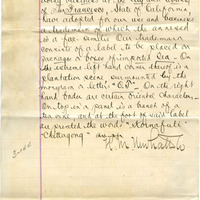 doing business at the City & County
of San Francisco, State of California
have adopted for our use and business
a trademark of which the annexed
is a fac-simile. Our trademark
consists of a label to be placed on
package or boxes of imported Tea. On
the extreme left hand corner thereof is a
plantation scene surmounted by the
monogram or letters On the right
hand border are certain Oriental Characters.
On top in a panel is a branch of a
tea vine, and at the foot of said label
are printed the words
Chittagong"
H. M. Newhall & Co